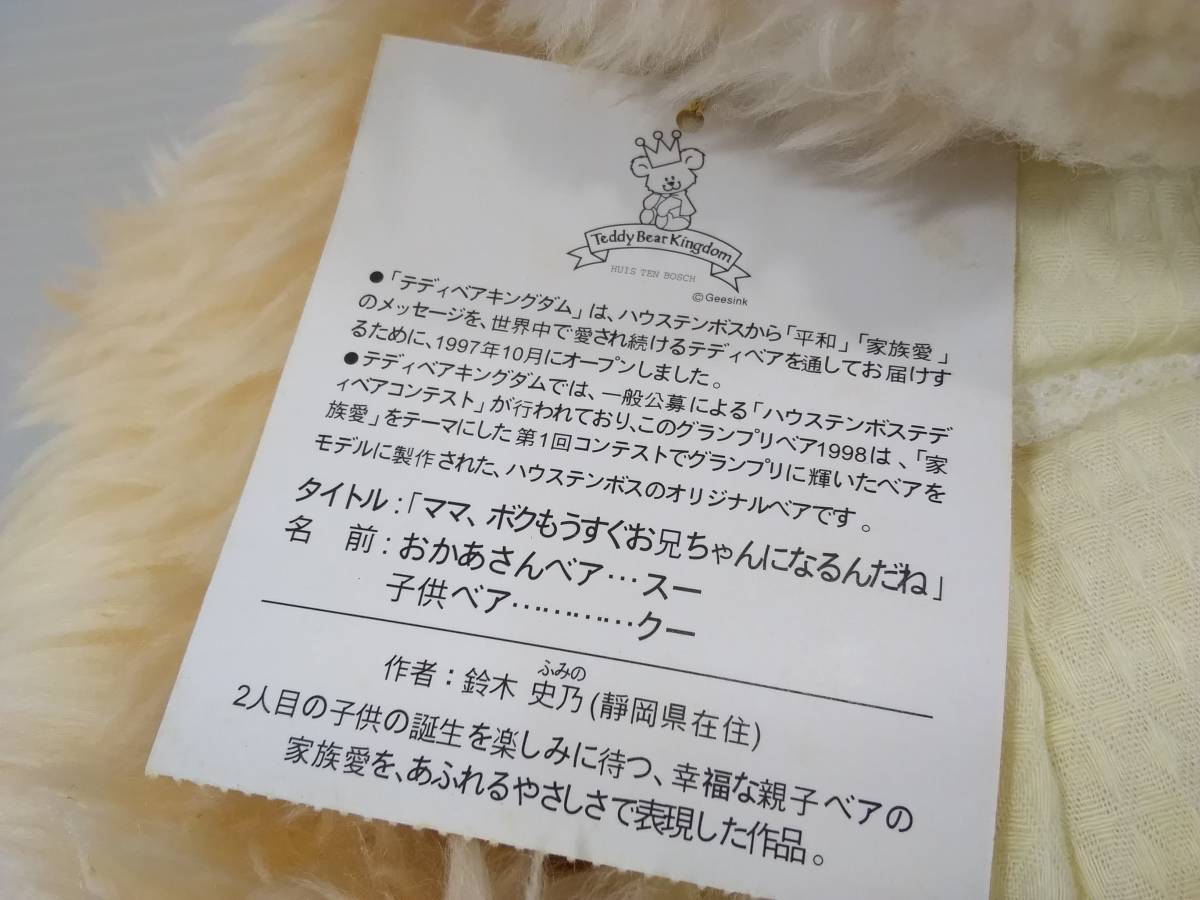 Teddy Bear Kingdom
HUIS TEN BOSCH
©Geesink
●「テディベアキングダム」は、ハウステンボスから「平和」「家族愛」
のメッセージを、世界中で愛され続けるテディベアを通してお届けす
るために、1997年10月にオープンしました。
●テディベアキングダムでは、一般公募による「ハウステンボステデ
ィベアコンテスト」が行われており、このグランプリベア1998は、「家
族愛」をテーマにした第1回コンテストでグランプリに輝いたベアを
モデルに製作された、ハウステンボスのオリジナルベアです。
タイトル:「ママ、ボクもうすぐお兄ちゃんになるんだね」
名 前:おかあさんベア…スー
子供ベア…………クー
ふみの
作者:鈴木 史乃(靜岡県在住)
2人目の子供の誕生を楽しみに待つ、幸福な親子ベアの
家族愛を、あふれるやさしさで表現した作品。